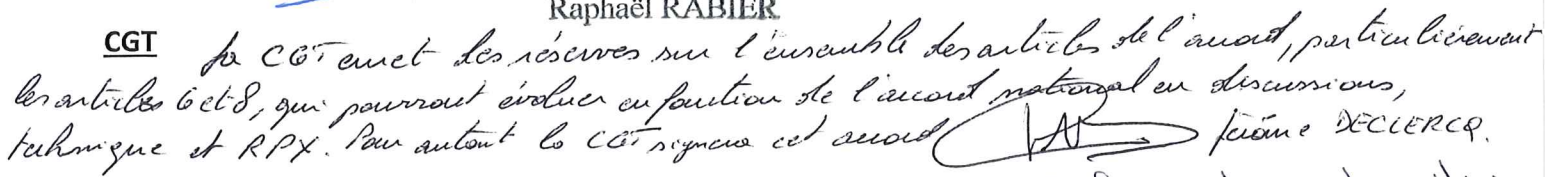 Raphaël RABIER
CGT La CGT emet des réserves sur l'ensemble des articles de l'accord, particulièrement
les articles 6 et 8, qui pourront évoluer en fonction de l'accord national en discussions,
technique et RPX. Pour autant la CGT signera cet accord Jérôme DECLERCQ.